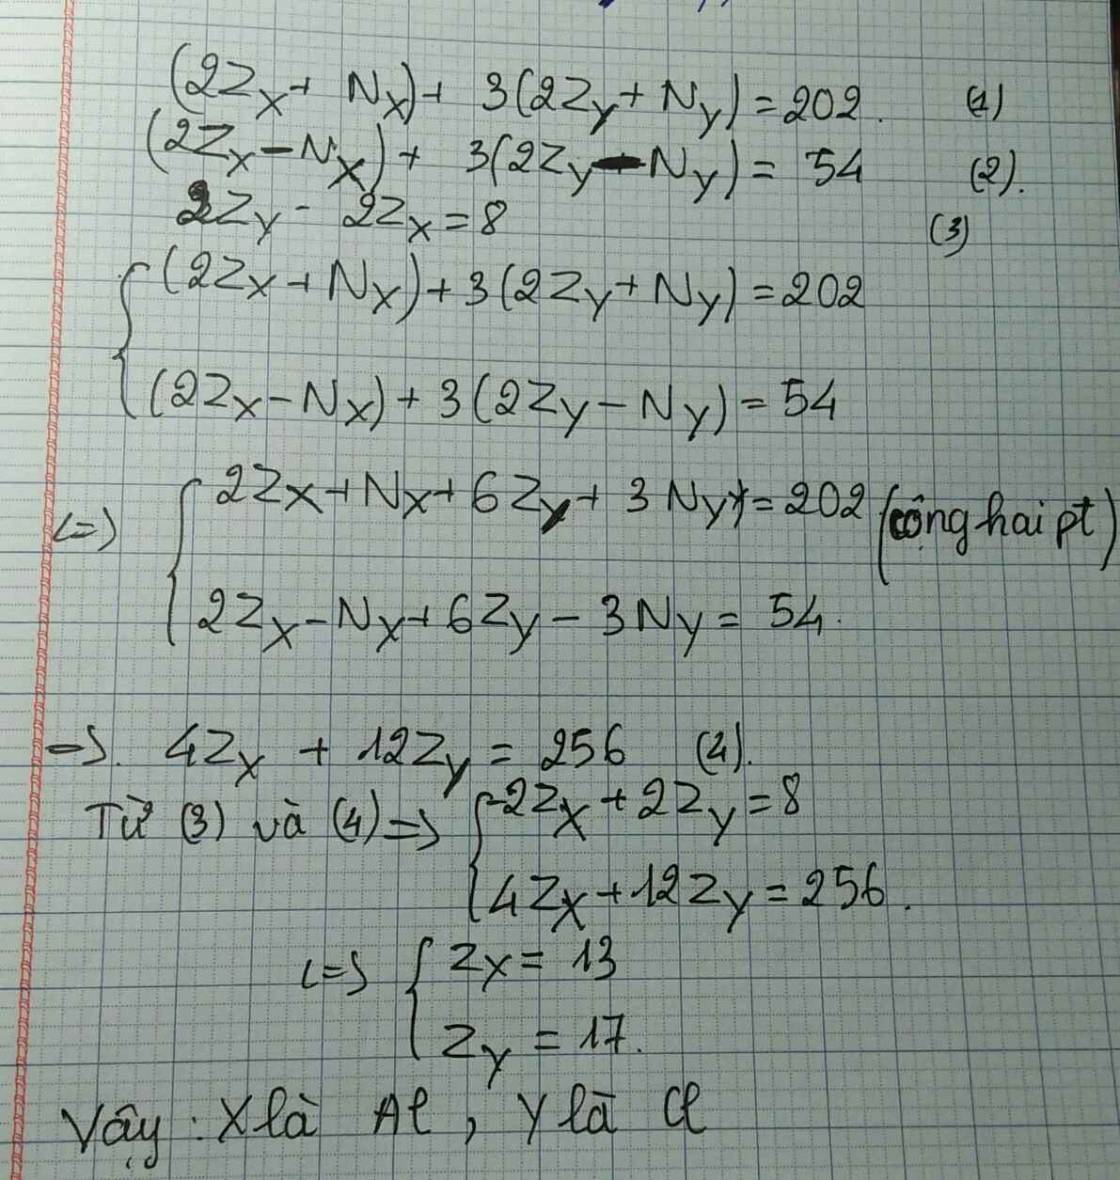 (2Zx + Nx) + 3(2Zy + Ny) = 202. (1)
(2Zx - Nx) + 3(2Zy - Ny) = 54 (2).
2Zy - 2Zx = 8 (3)
{ (2Zx + Nx) + 3(2Zy + Ny) = 202
(2Zx - Nx) + 3(2Zy - Ny) = 54
<=> { 2Zx + Nx + 6Zy + 3Ny = 202 (cộng hai pt)
2Zx - Nx + 6Zy - 3Ny = 54.
=>. 4Zx + 12Zy = 256 (4).
Từ (3) và (4) => { -2Zx + 2Zy = 8
4Zx + 12Zy = 256.
<=> { Zx = 13
Zy = 17.
Vậy : X là Al, Y là Cl